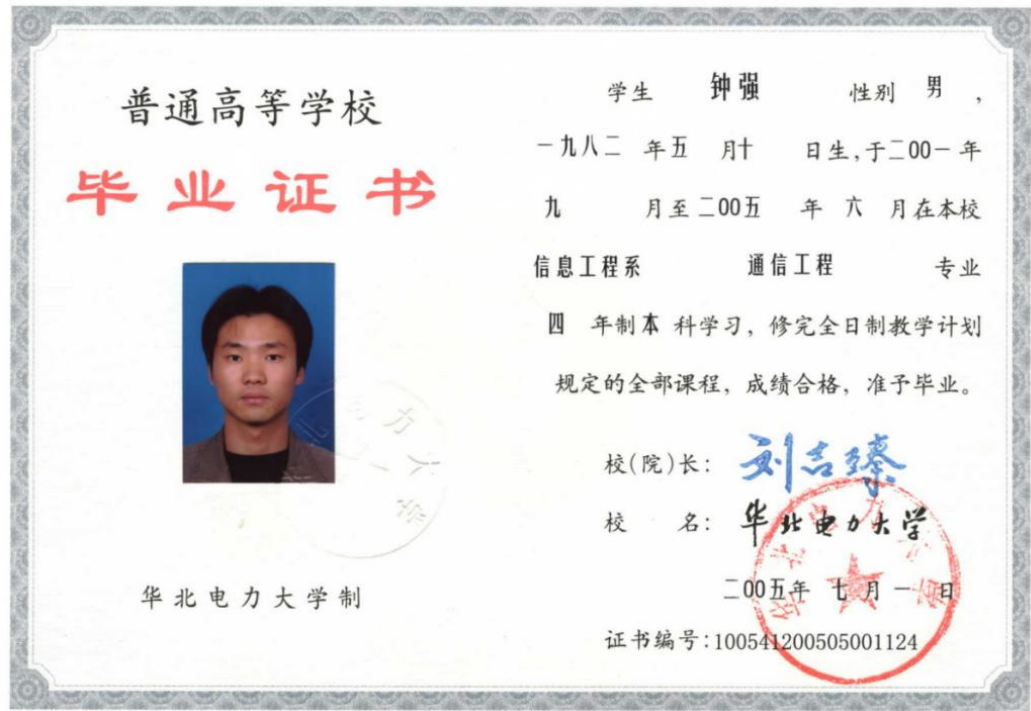 普通高等学校
毕业证书
华北电力大学制
学生 钟强 性别 男，
一九八二 年五 月十 日生，于二00一年
九 月至二00五 年 六 月在本校
信息工程系 通信工程 专业
四 年制本 科学习，修完全日制教学计划
规定的全部课程，成绩合格，准予毕业。
校(院)长： 刘吉臻
校 名： 华北电力大学
二00五年 七月一 日
证书编号:100541200505001124